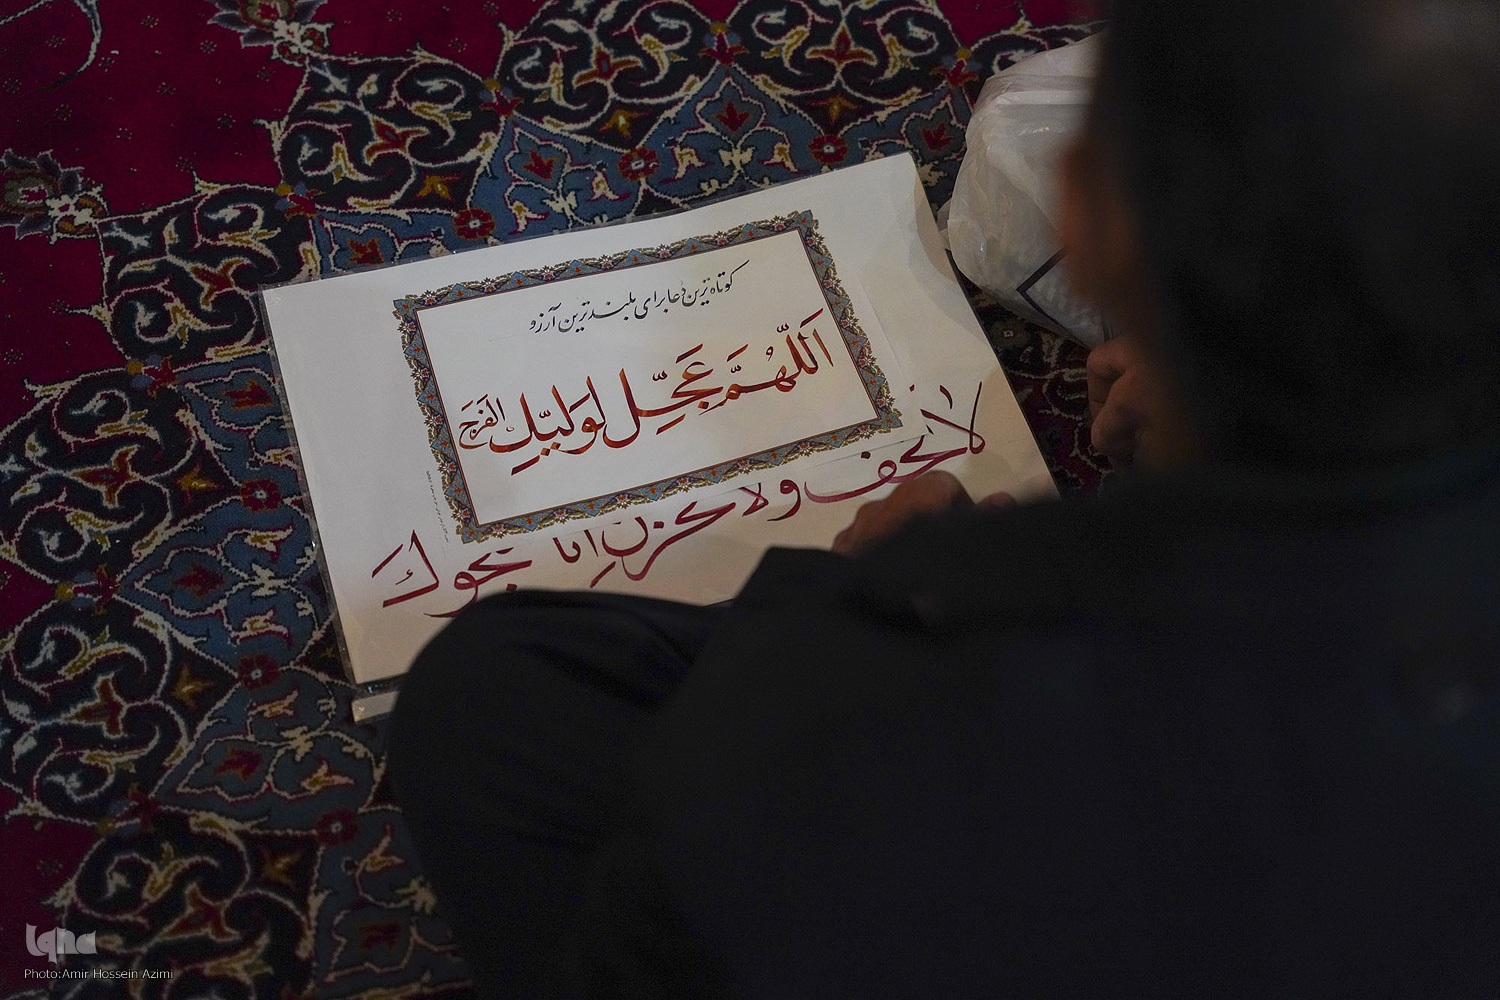 کوتاه‌ترین دعا برای بلندترین آرزو
اَللّهُمَّ عَجِّل لِوَلیِّکَ الفَرَج
لا تخف ولا تحزن انا منجوك
Iqna
Photo:Amir Hossein Azimi